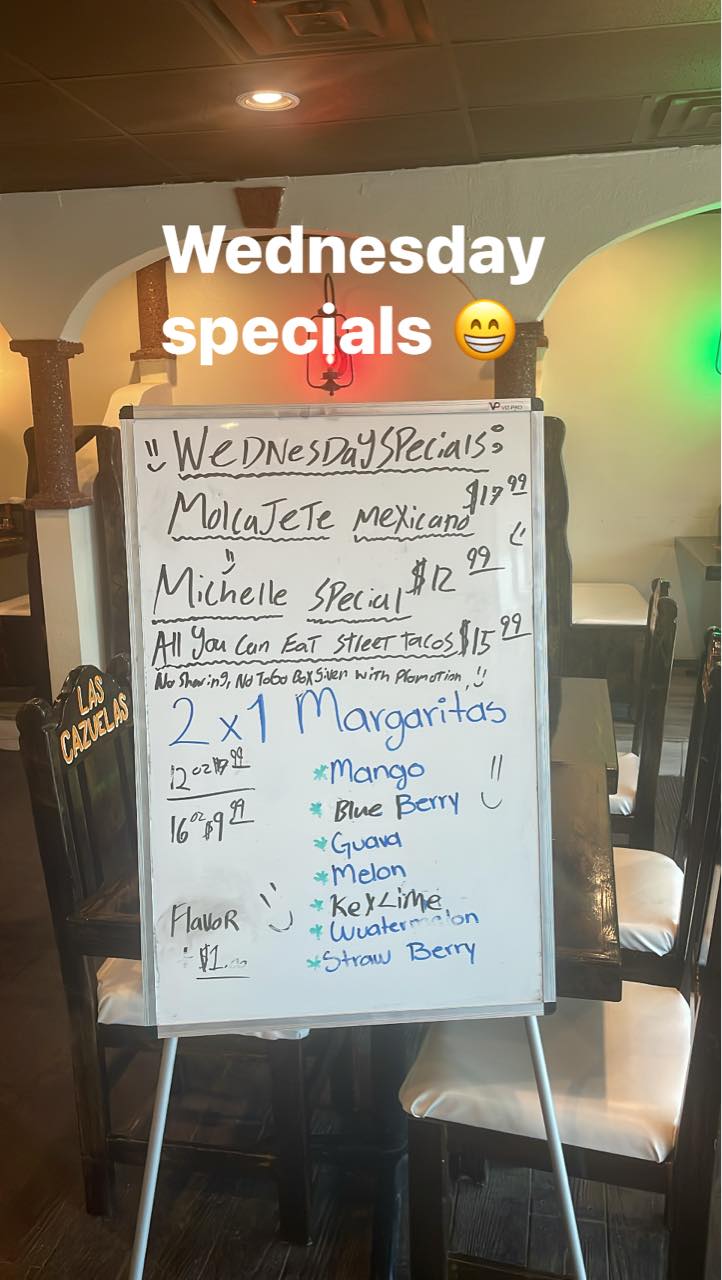 Wednesday
specials 😁
VIZ-PRO
WeDNesDaySPecials:
MolcaJeTe Mexicano $17.99
Michelle SPecial $12.99
All You Can EaT STreeT Tacos $15.99
No Sharing, No ToGo Box Given with Promotion
LAS
CAZUELAS
2 x 1 Margaritas
12 oz $7.99
*Mango
*Blue Berry
16 oz $9.99
*Guava
*Melon
*KeyLime
FlavoR
*Wuatermelon
+ $1.00
*Straw Berry